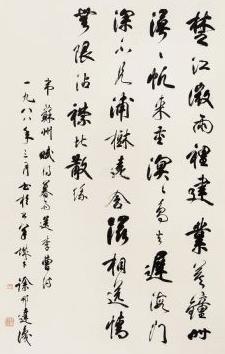 楚江微雨裡建業暮鐘時
漠漠帆來重冥冥鳥去遲海門
深不見浦樹遠含滋相送情
無限沾襟比散絲
韋蘇州賦得暮雨送李曹詩
一九八八年三月書 徐邦達識